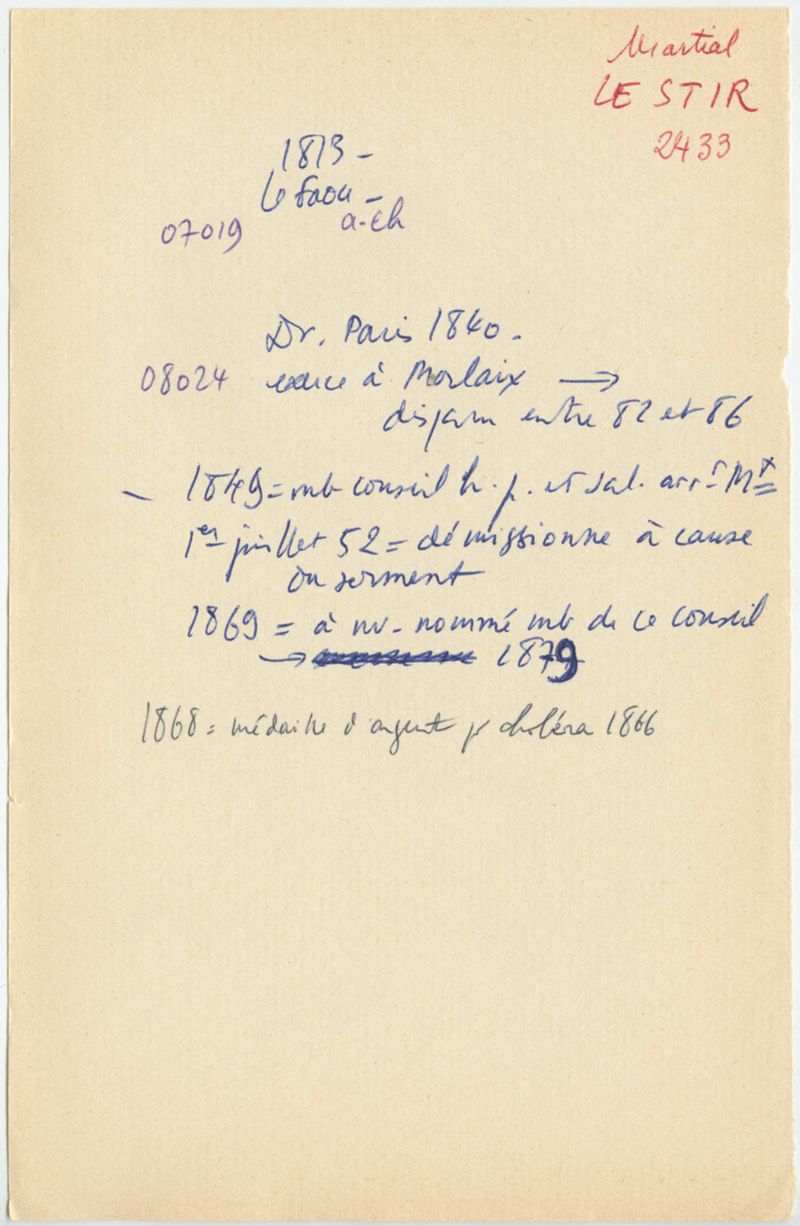 Martial
LE STIR
2433
1813 -
Le Faou -
07019 a-ch
Dr. Paris 1840.
08024 exerce à Morlaix →
disparu entre 82 et 86
– 1849 = mb conseil h. p. et sal. arrt Mx
1er juillet 52 = démissionne à cause
du serment
1869 = à nv. nommé mb de ce conseil
→ 1879
1868 = médaille d'argent pr choléra 1866